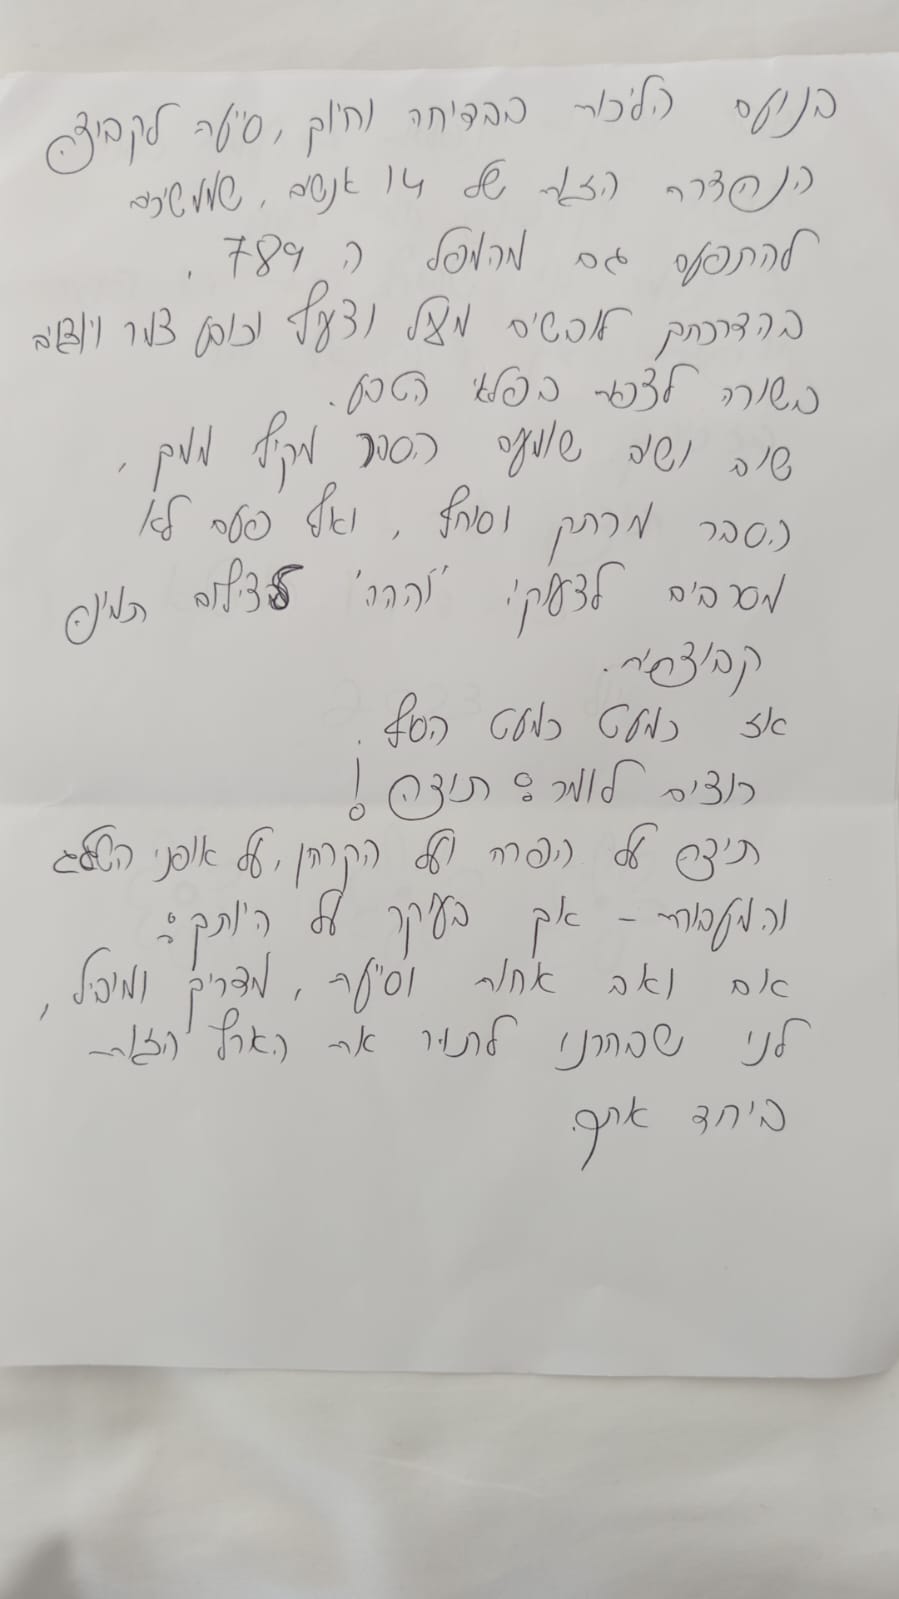 בנועם הליכות בבדיחה וחיוך, סייעה לקבוצה
הנהדרת הזאת של 14 אנשים, שממשיכים
להתפעם גם מהמפל ה 789.
בהדרכתך לובשים מעיל וצעיף וכובע צמר ויוצאים
בשורה לצפות בפלאי הטבע.
שוב ושוב שומעים הסבר מקיף ממך,
הסבר מרתק וסוחף, ואף פעם לא
מסרבים לצעוק: "וההה" לצילום תמונה
קבוצתית.
אז כמעט כמעט הסוף.
רוצים לומר: תודה!
תודה על הפרה ועל הקרחון, על אופני השלג
והמעבורת - אך בעיקר על היותך:
אם ואב אחות וסייעת, מדריך ומוביל,
לנו שבחרנו לתור את הארץ הזאת
ביחד אתך.